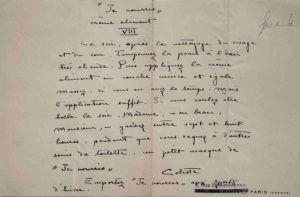 "Je nourris"
crème aliment
VIII
Le soir, après le nettoyage du visage
et du cou, tamponnez la peau à l'eau
très chaude. Puis appliquez la crème
aliment en couche mince et égale.
Massez, si vous en avez le temps, mais
l'application suffit. Si vous voulez être
belle le soir, Madame, ou beau,
Monsieur, gardez entre sept et huit
heures, pendant que vous vaquez à d'autres
soins de toilette, un petit masque de
"Je nourris"
Colette
Emportez "Je nourris" aux sports
d'hiver.
PARIS